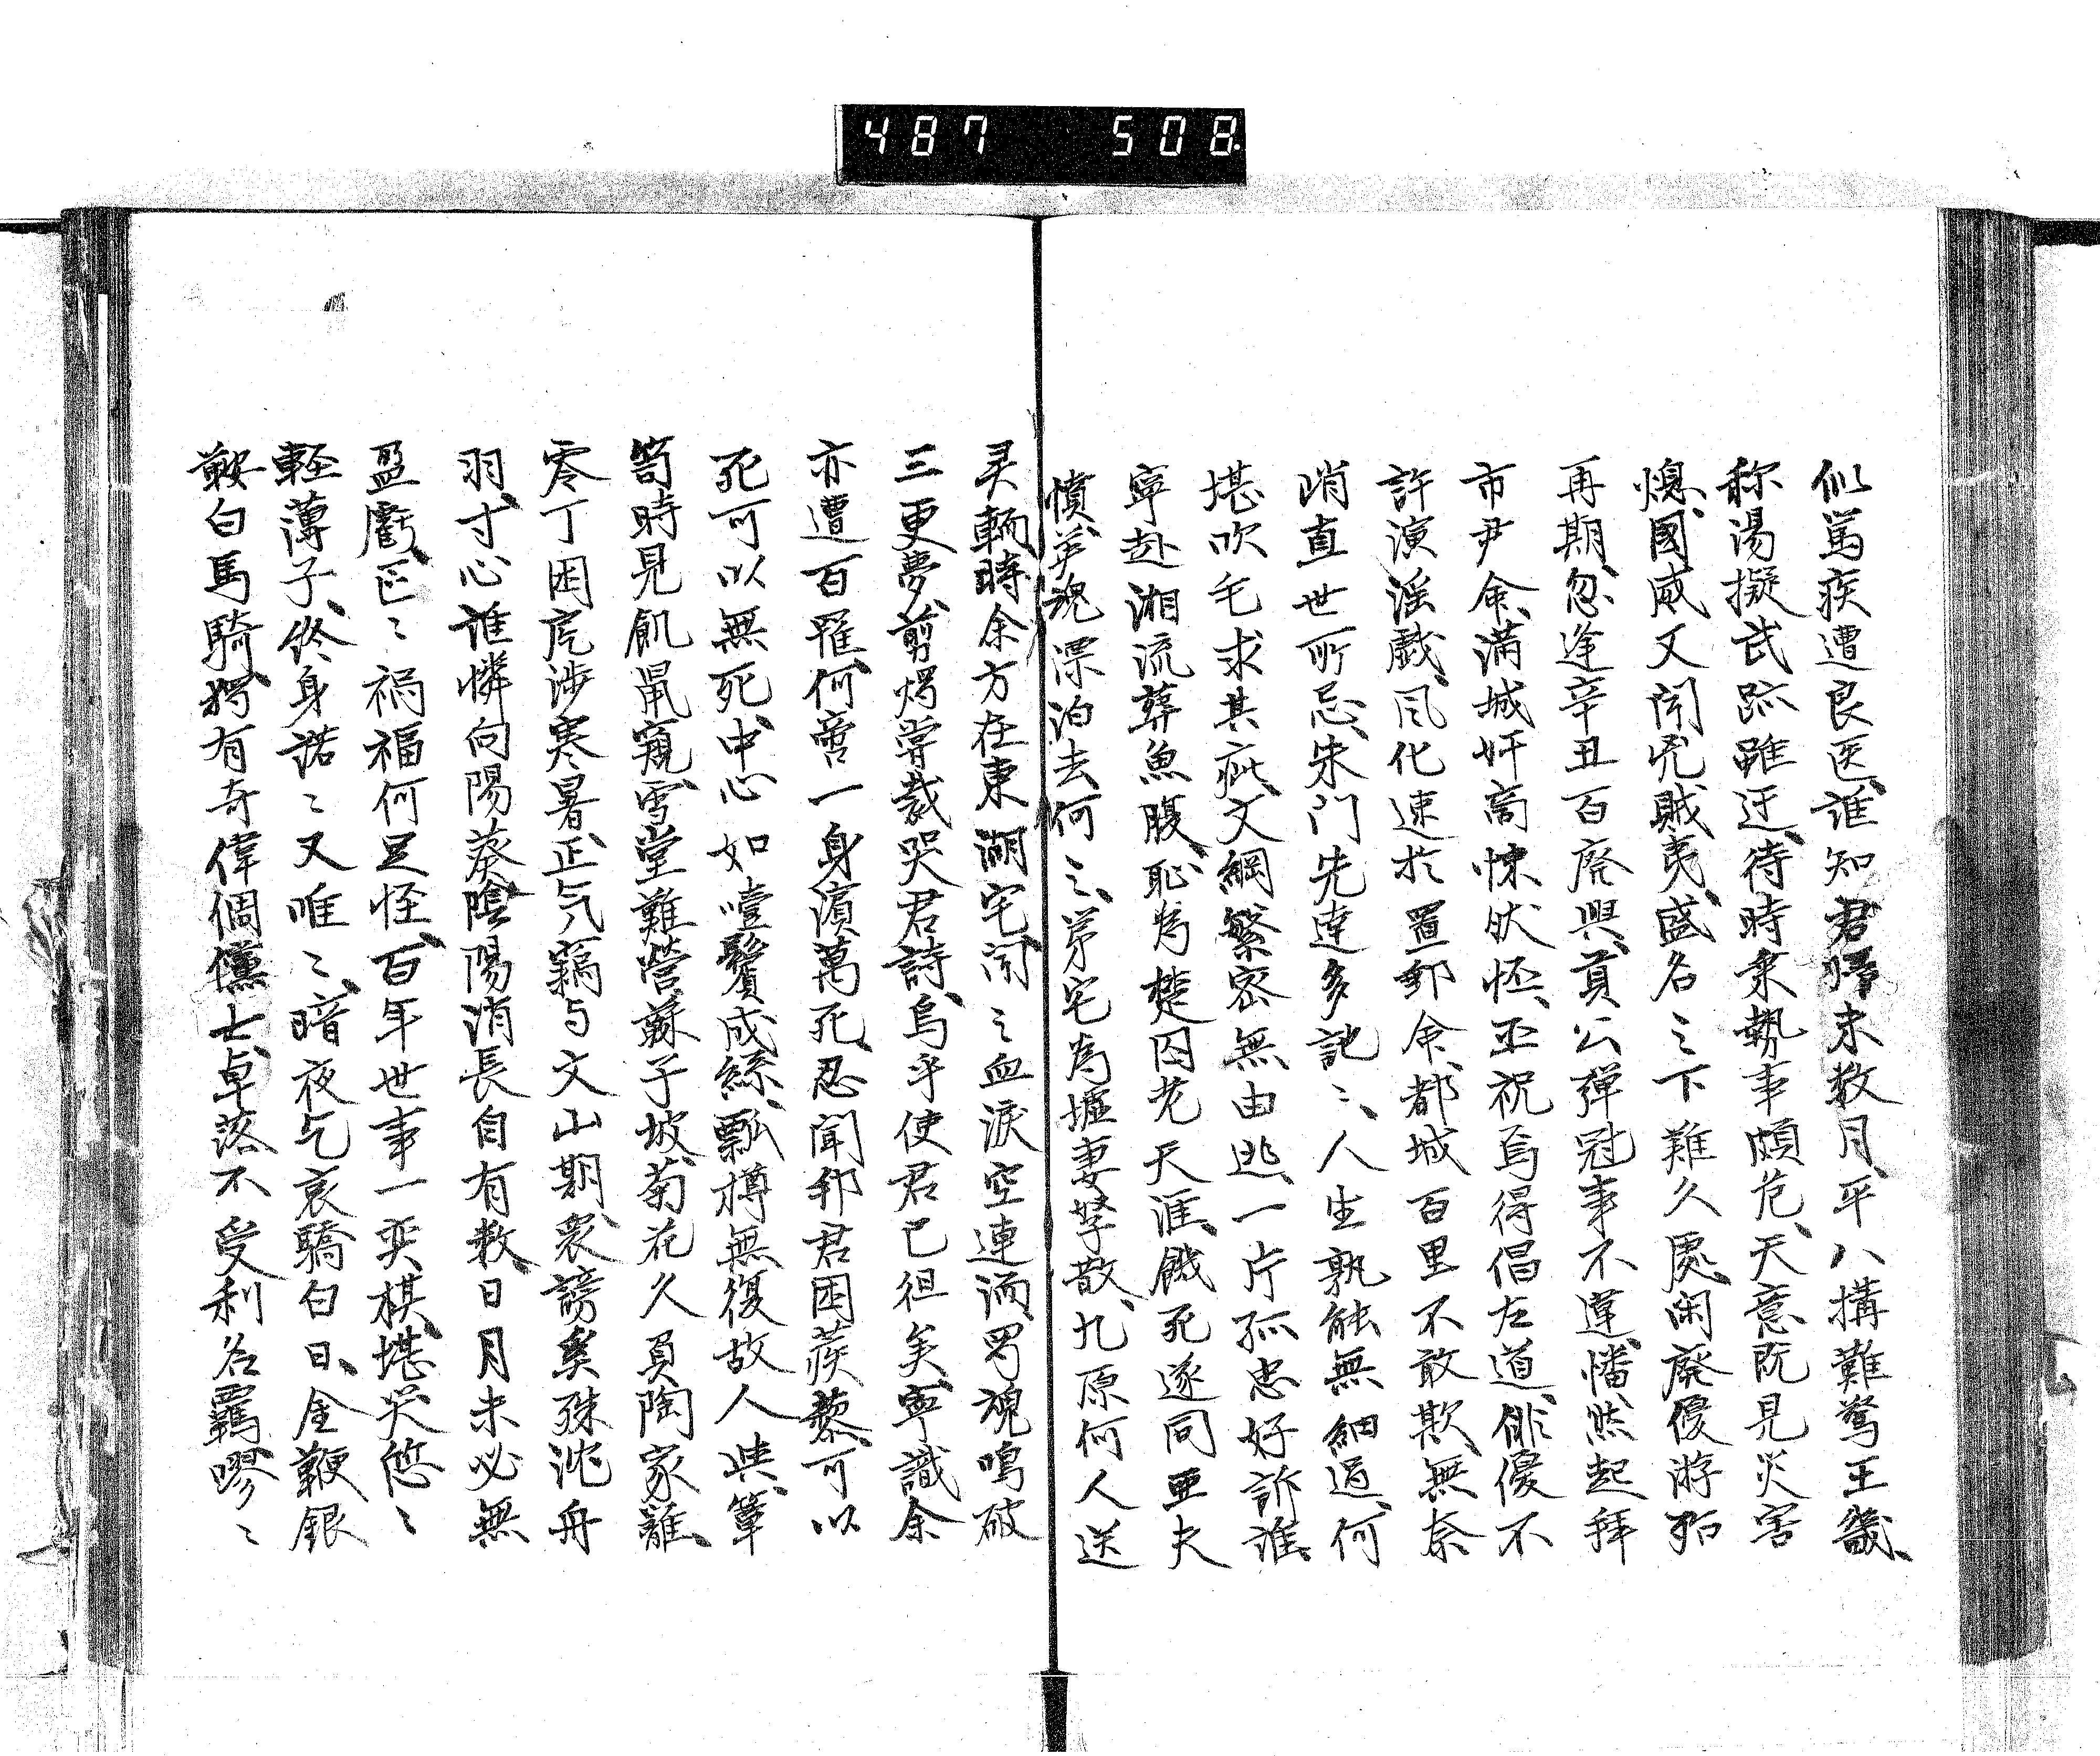 487 508.
似篤疾遭良医、誰知君歸未数月、平八搆難驚王畿、
称湯擬武跡雖迂、待時乗勢事頗危、天意既見災害
熄、國威又聞兇賊夷、盛名之下難久處、閑廢優游殆
再期、忽逢辛丑百廃興、貢公弾冠事不違、幡然起拝
市尹命、満城奸商悚狀怌、巫祝烏得倡左道、俳優不
許演淫戲、風化速於置郵命、都城百里不敢欺、無奈
峭直世所忌、朱门先達多訑々、人生孰能無細過、何
堪吹毛求其疵、文綱繁密無由逃、一片孤忠好訴誰、
寧赴湘流葬魚腹、恥為楚囚老天涯、餓死遂同亜夫
憤、英魂漂泊去何之、第宅為墟妻孥散、九原何人送
灵輀、時余方在東湖宅、闻之血涙空連洏、罗魂鳴破
三更夢、剪燭嘗裁哭君詩、烏乎使君已徂矣、寧識余
亦遭百罹、何啻一身濱萬死、忍聞郅君困蒺藜、可以
死可以無死、中心如噎鬢成絲、瓢樽無復故人共、簞
笥時見飢鼠窺、雪堂難営蘇子坡、菊花久負陶家籬、
零丁困戹渉寒暑、正气竊与文山期、衆謗奚殊沈舟
羽、寸心誰憐向陽葵、陰陽消長自有数、日月未必無
盈虧、区々禍福何足怪、百年世事一奕棋、堪哭悠々
輕薄子、終身諾々又唯々、暗夜乞哀驕白日、金鞭銀
鞍白馬騎、將有奇偉倜儻士、卓落不受利名羈、嘐々